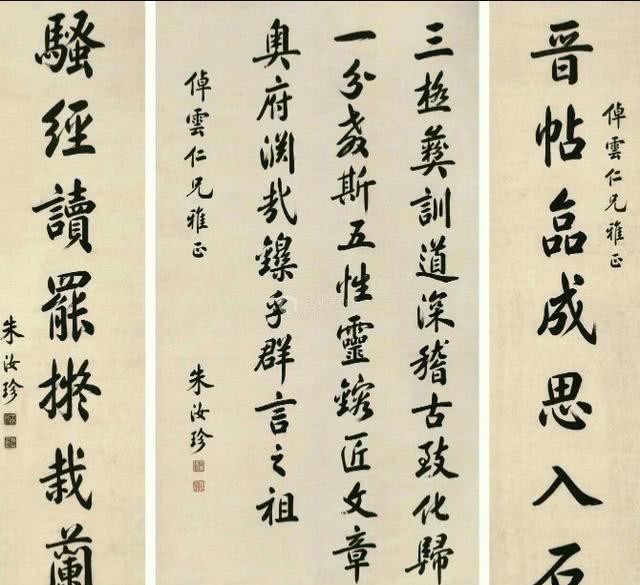 倬雲仁兄雅正
晋帖品成思入石
三極彝訓道深稽古致化歸
一分教斯五性靈鎔匠文章
奥府渊哉鑠乎群言之祖
倬雲仁兄雅正
朱汝珍
騷經讀罷擬栽蘭
朱汝珍